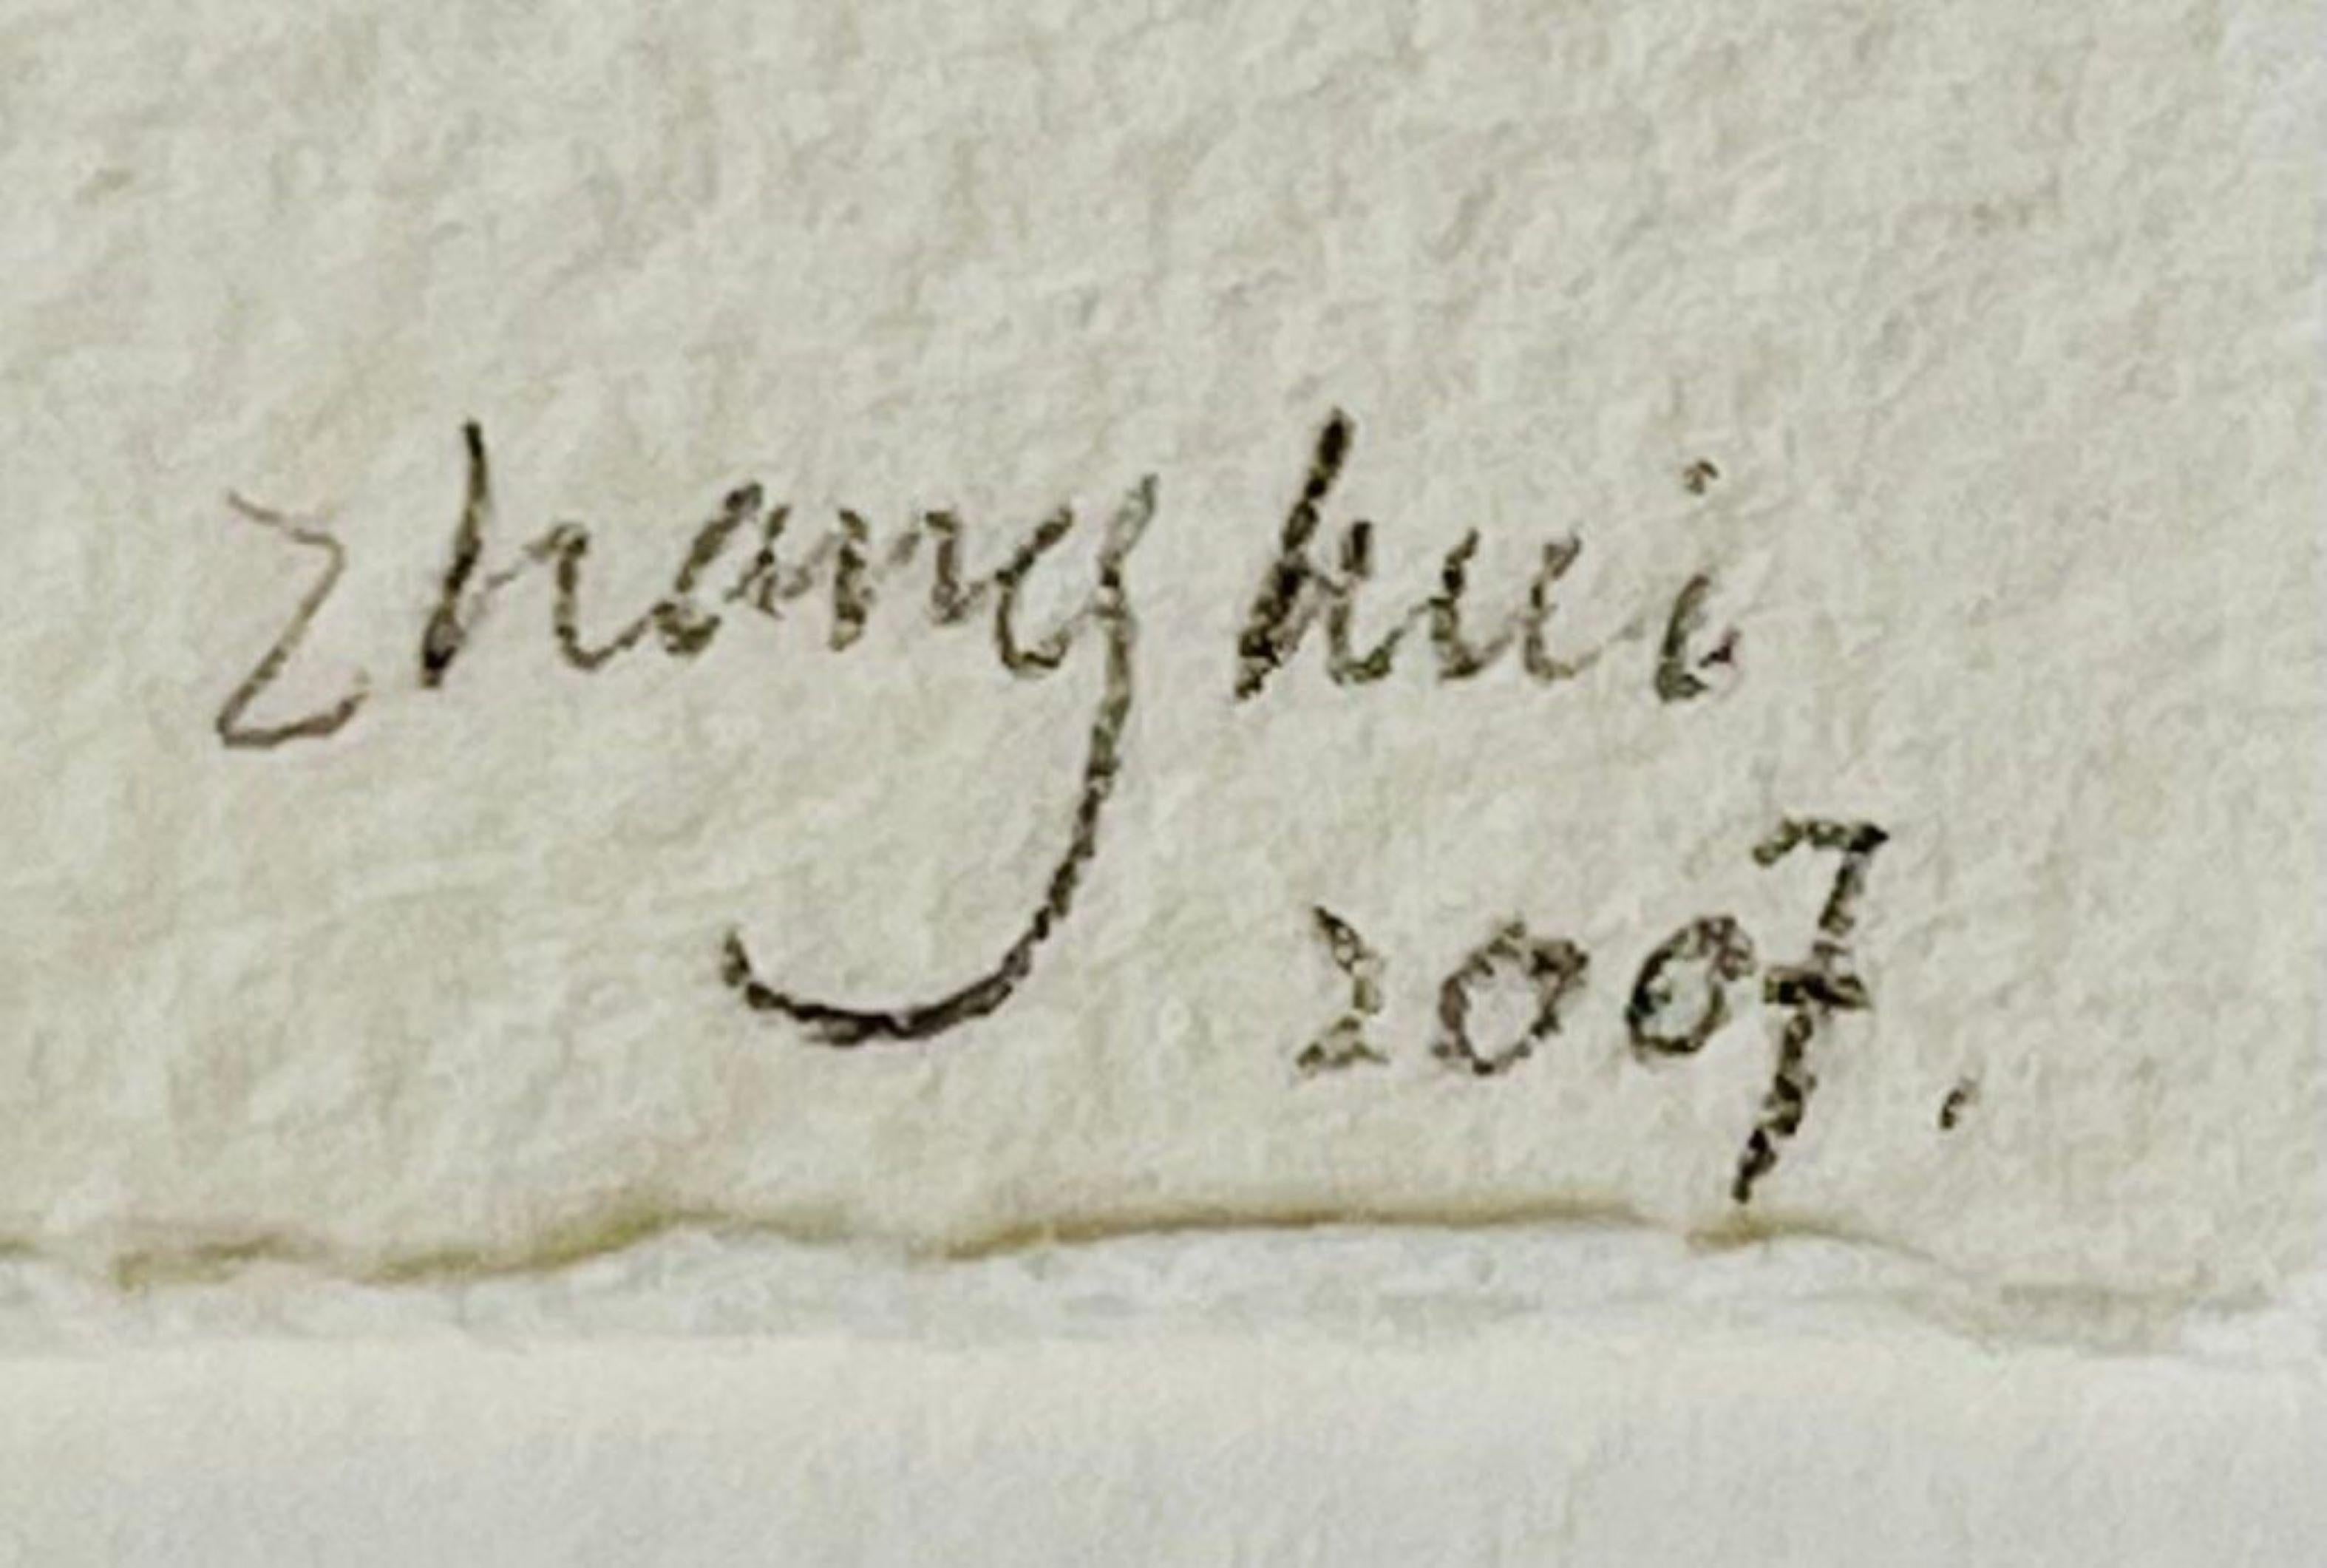 Zhang hui
2007.